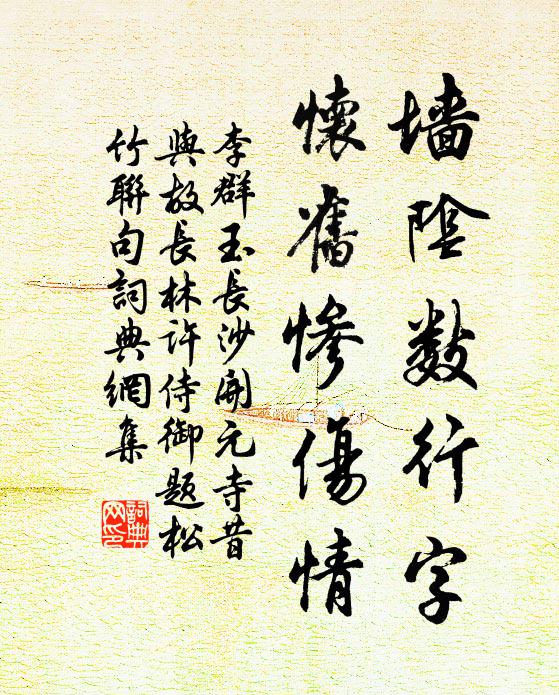 墙陰数行字
懷舊惨傷情
李群玉長沙開元寺昔
與故長林許侍御题松
竹聯句詞典網集
詞典网印